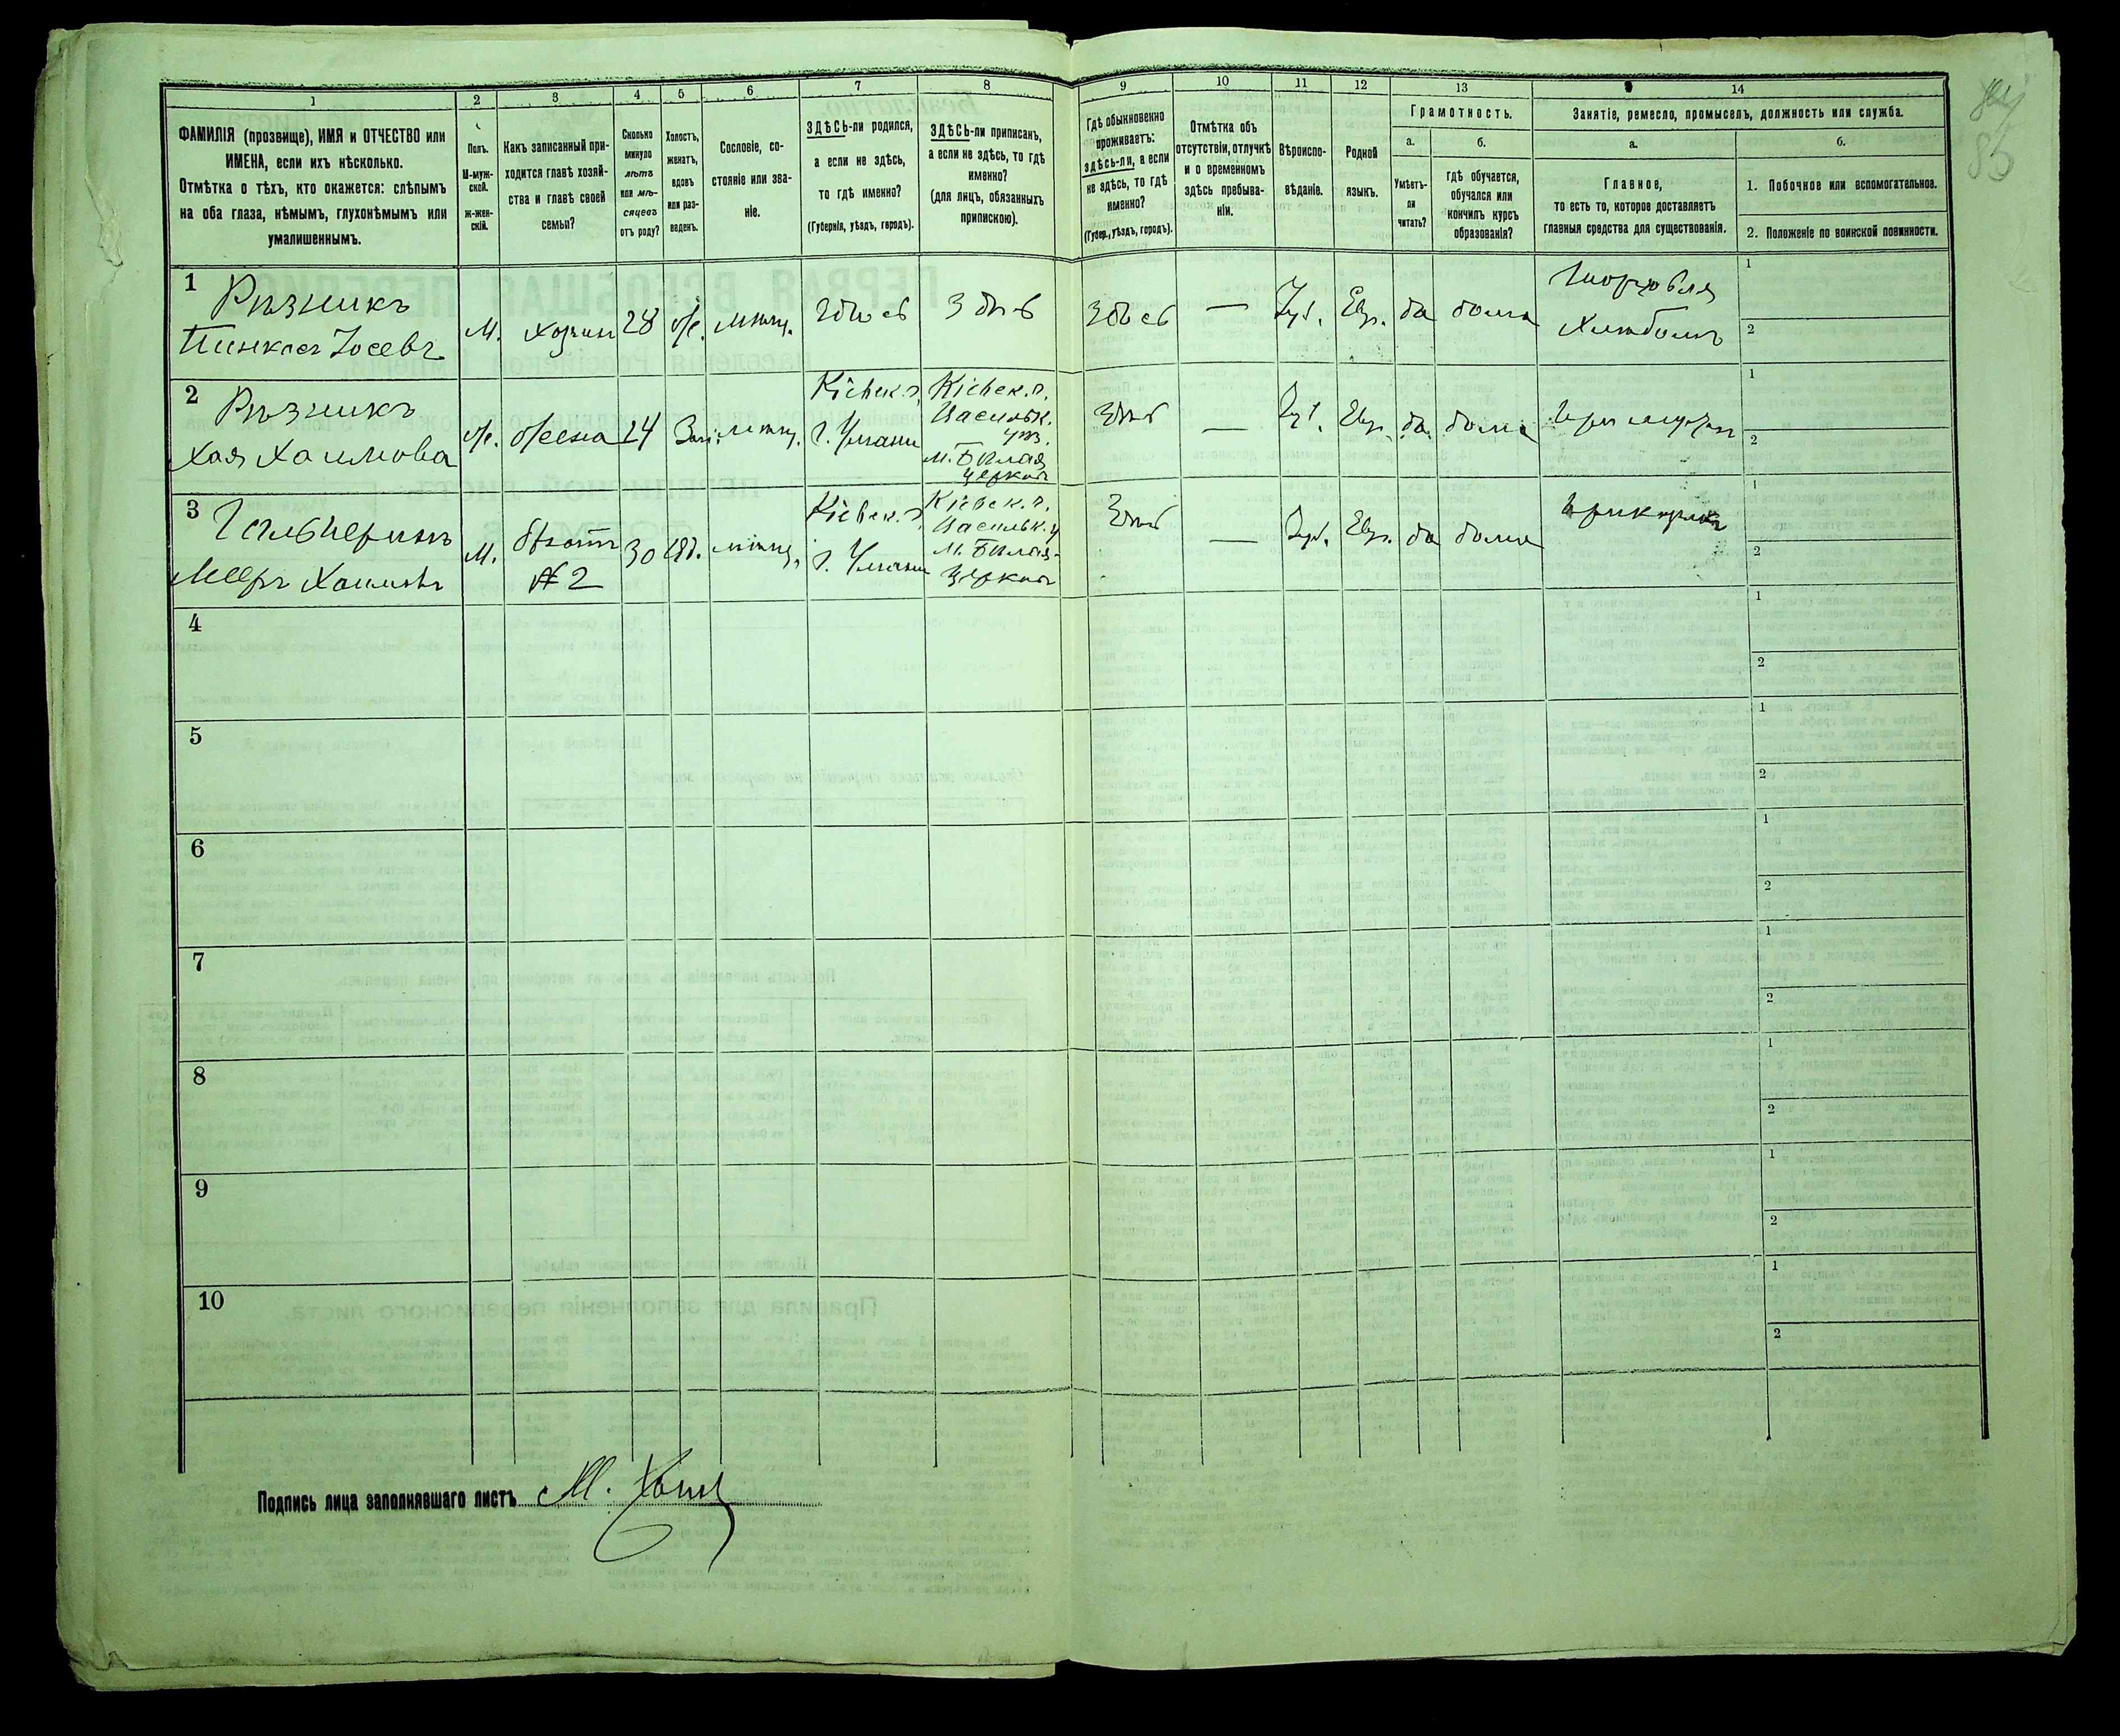 1 2 3 4 5 6 7 8 9 10 11 12 13 14
ФАМИЛІЯ (прозвище), ИМЯ и ОТЧЕСТВО или
ИМЕНА, если ихъ нѣсколько.
Отмѣтка о тѣхъ, кто окажется: слѣпымъ
на оба глаза, нѣмымъ, глухонѣмымъ или
умалишеннымъ.
Полъ.
М-муж-
ской.
Ж-жен-
скій.
Какъ записанный при-
ходится главѣ хозяй-
ства и главѣ своей
семьи?
Сколько
минуло
лѣтъ
или мѣ-
сяцевъ
отъ роду?
Холостъ,
женатъ,
вдовъ
или раз-
веденъ.
Сословіе, со-
стояніе или зва-
ніе.
ЗДѢСЬ-ли родился,
а если не здѣсь,
то гдѣ именно?
(Губернія, уѣздъ, городъ).
ЗДѢСЬ-ли приписанъ,
а если не здѣсь, то гдѣ
именно?
(для лицъ, обязанныхъ
припискою).
Гдѣ обыкновенно
проживаетъ:
здѣсь-ли, а если
не здѣсь, то гдѣ
именно?
(Губер., уѣздъ, городъ).
Отмѣтка объ
отсутствіи, отлучкѣ
и о временномъ
здѣсь пребыва-
ніи.
Вѣроиспо-
вѣданіе.
Родной
языкъ.
Грамотность.
а.
Умѣетъ-
ли
читать?
б.
гдѣ обучается,
обучался или
кончилъ курсъ
образованія?
Занятіе, ремесло, промыселъ, должность или служба.
а.
Главное,
то есть то, которое доставляетъ
главныя средства для существованія.
б.
1. Побочное или вспомогательное.
2. Положеніе по воинской повинности.
85
1 Рѣзникъ
Пинкасъ Іосевъ
М. хозяин 28 же. мѣщ. Здѣсь Здѣсь Здѣсь — Іуд. Евр. да дома
Торговля
Хлѣбомъ
1
2
2 Рѣзникъ
Хая Хаимова
же. жена 24 Зам. мѣщ.
Кіевск. г.
г. Умани
Кіевск. г.
Васильк.
уѣз.
м. Бѣлая
Церковь
Здѣсь — Іуд. Евр. да дома при мужѣ
1
2
3 Гальперинъ
Мееръ Хаимовъ
М. братъ
№ 2
30 мѣщ.
Кіевск. г.
г. Умани
Кіевск. г.
Васильк. у
м. Бѣлая-
Церковь
Здѣсь — Іуд. Евр. да дома
1
2
4
1
2
5
1
2
6
1
2
7
1
2
8
1
2
9
1
2
10
1
2
Подпись лица заполнявшаго листъ М.